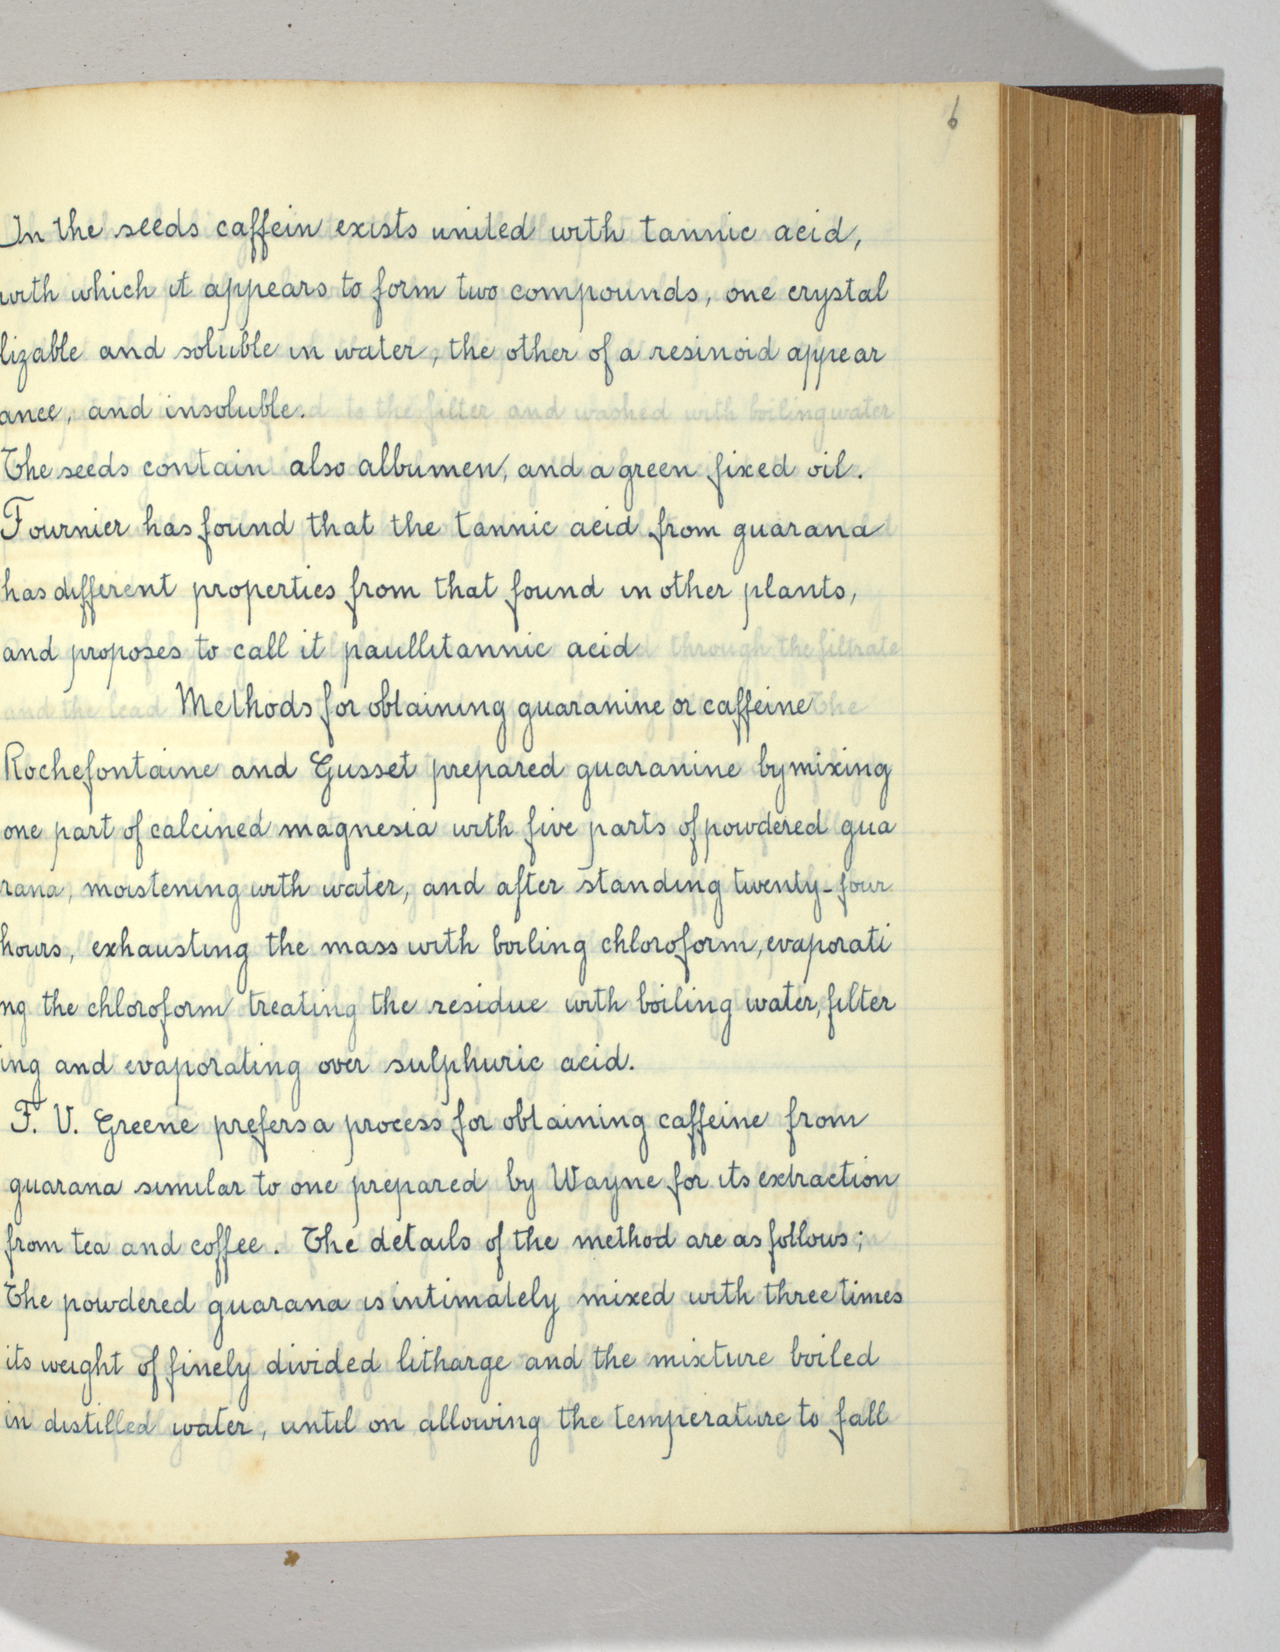 6
In the seeds caffein exists united with tannic acid,
with which it appears to form two compounds, one crystal
lizable and soluble in water, the other of a resinoid appear
ance, and insoluble.
The seeds contain also albumen, and a green fixed oil.
Fournier has found that the tannic acid from guarana
has different properties from that found in other plants,
and proposes to call it paullitannic acid
Methods for obtaining guaranine or caffeine
Rochefontaine and Gusset prepared guaranine by mixing
one part of calcined magnesia with five parts of powdered gua
rana, moistening with water, and after standing twenty-four
hours, exhausting the mass with boiling chloroform, evaporati
ng the chloroform treating the residue with boiling water, filter
ing and evaporating over sulphuric acid.
F. V. Greene prefers a process for obtaining caffeine from
guarana similar to one prepared by Wayne for its extraction
from tea and coffee. The details of the method are as follows;
The powdered guarana is intimately mixed with three times
its weight of finely divided litharge and the mixture boiled
in distilled water, until on allowing the temperature to fall